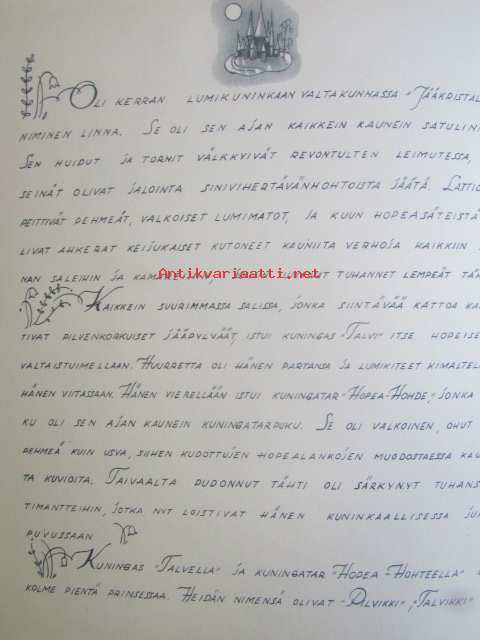 Oli kerran lumikuninkaan valtakunnassa "Jääkristal
niminen linna. Se oli sen ajan kaikkein kaunein satulin
Sen huiput ja tornit välkkyivät revontulten leimutessa,
seinät olivat jalointa sinivihertävänhohtoista jäätä. Lattio
peittivät pehmeät, valkoiset lumimatot, ja kuun hopeasäteistä
livat ahkerat keijukaiset kutoneet kauniita verhoja kaikkiin
nan saleihin ja tuhannet lempeät täh
Antikvariaatti.net
Kaikkein suurimmassa salissa, jonka siintävää kattoa kan
tivat pilvenkorkuiset jääpylväät, istui kuningas "Talvi" itse hopeise
valtaistuimellaan. Huurretta oli hänen partansa ja lumikiteet kimaltele
hänen viitassaan. Hänen vierellään istui kuningatar "Hopea-Hohde", jonka
ku oli sen ajan kaunein kuningatarpuku. Se oli valkoinen, ohut
pehmeä kuin usva, siihen kudottujen hopealankojen muodostaessa kau
ta kuvioita. Taivaalta pudonnut tähti oli särkynyt tuhans
timantteihin, jotka nyt loistivat hänen kuninkaallisessa ju
puvussaan
Kuningas "Talvella" ja kuningatar "Hopea-Hohteella"
kolme pientä prinsessaa. Heidän nimensä olivat "Pilvikki", "Talvikki"